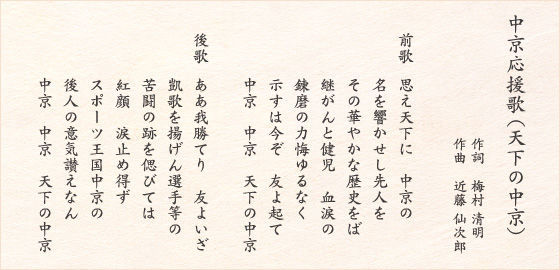 中京応援歌(天下の中京)
作詞　梅村 清明
作曲　近藤 仙次郎
前歌　思え天下に　中京の
名を響かせし先人を
その華やかな歴史をば
継がんと健児　血涙の
錬磨の力悔ゆるなく
示すは今ぞ　友よ起て
中京　中京　天下の中京
後歌　ああ我勝てり　友よいざ
凱歌を揚げん選手等の
苦闘の跡を偲びては
紅顔　涙止め得ず
スポーツ王国中京の
後人の意気讃えなん
中京　中京　天下の中京